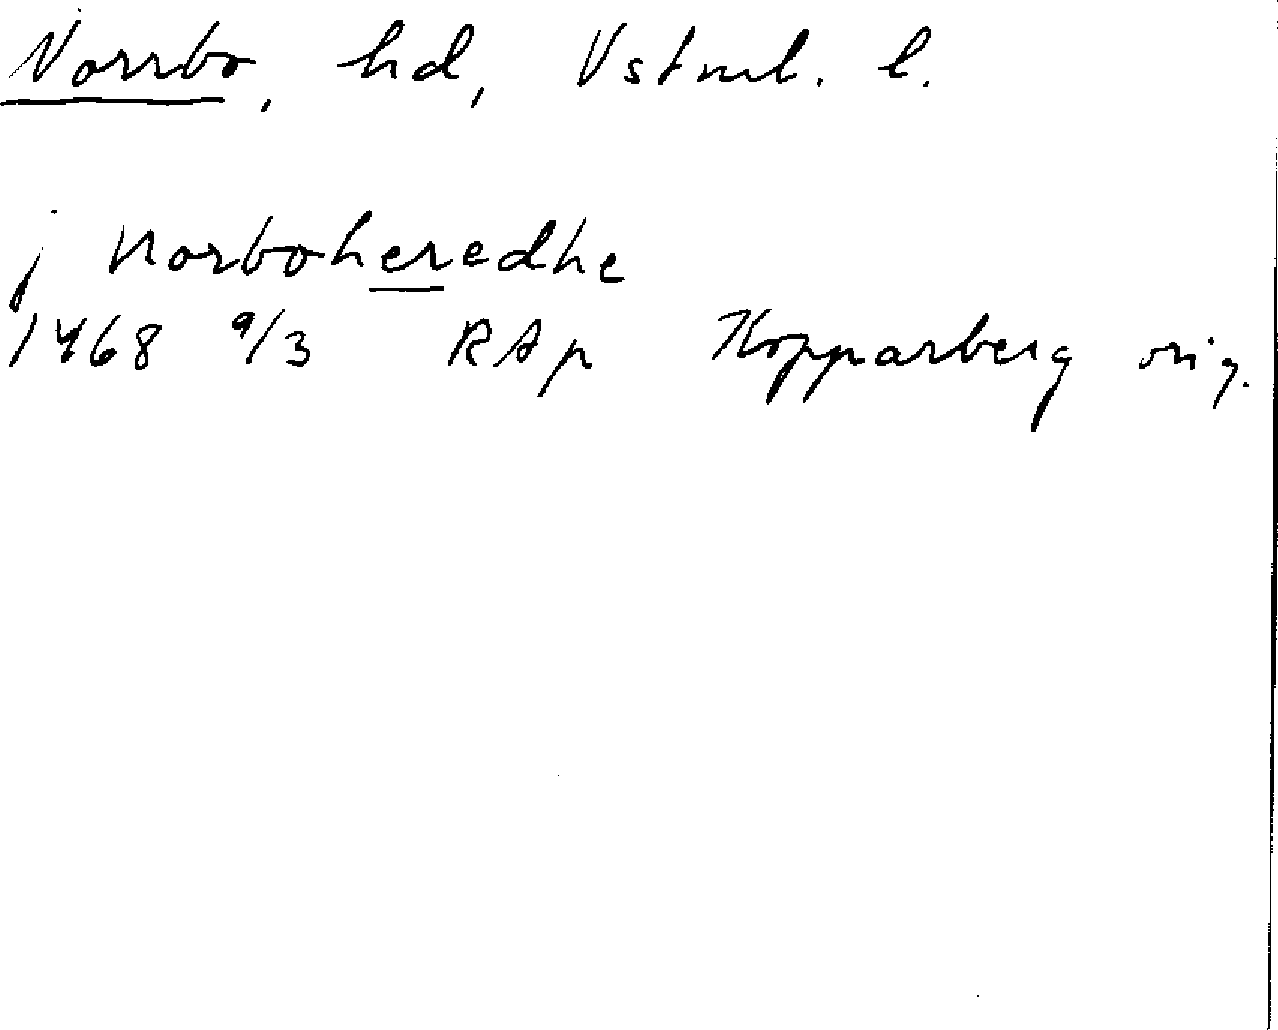 Norrbo, hd, Vstml. l.
j norboheredhe
1468 9/3 RAp Kopparberg orig.